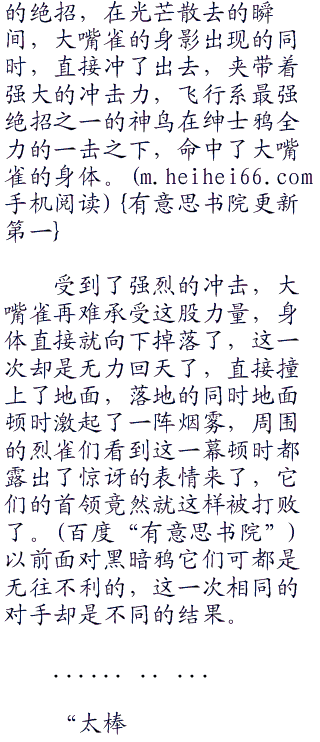 的绝招，在光芒散去的瞬
间，大嘴雀的身影出现的同
时，直接冲了出去，夹带着
强大的冲击力，飞行系最强
绝招之一的神鸟在绅士鸦全
力的一击之下，命中了大嘴
雀的身体。(m.heihei66.com
手机阅读){有意思书院更新
第一}
受到了强烈的冲击，大
嘴雀再难承受这股力量，身
体直接就向下掉落了，这一
次却是无力回天了，直接撞
上了地面，落地的同时地面
顿时激起了一阵烟雾，周围
的烈雀们看到这一幕顿时都
露出了惊讶的表情来了，它
们的首领竟然就这样被打败
了。(百度“有意思书院”)
以前面对黑暗鸦它们可都是
无往不利的，这一次相同的
对手却是不同的结果。
...... .. ...
“太棒